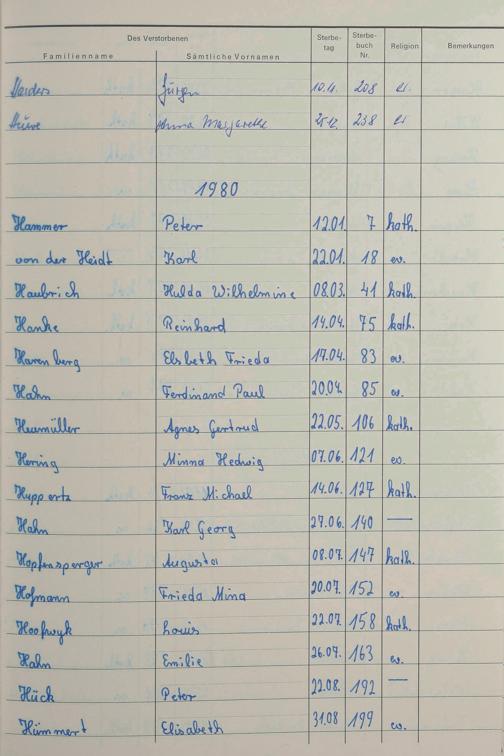 Des Verstorbenen Sterbe- tag Sterbe- buch Nr. Religion Bemerkungen
Familienname Sämtliche Vornamen
Jürgen 10.4. 208 ev.
Anna Margarethe 25.12. 238 ev
1980
Hammer Peter 12.01. 7 kath.
von der Heidt Karl 22.01. 18 ev.
Haubrich Hulda Wilhelmine 08.03. 41 kath.
Hanke Reinhard 14.04. 75 kath.
Harenberg Elsbeth Frieda 17.04. 83 ev.
Hahn Ferdinand Paul 20.04. 85 ev.
Heumüller Agnes Gertrud 22.05. 106 kath.
Hering Minna Hedwig 07.06. 121 ev.
Huppertz Franz Michael 14.06. 127 kath.
Hahn Karl Georg 27.06. 140 —
Hopfensperger Augusta 08.07. 147 kath.
Hofmann Frieda Mina 20.07. 152 ev.
Hoofwyk Louis 22.07. 158 kath.
Hahn Emilie 26.07. 163 ev.
Hück Peter 22.08. 192 —
Hümmert Elisabeth 31.08 199 ev.